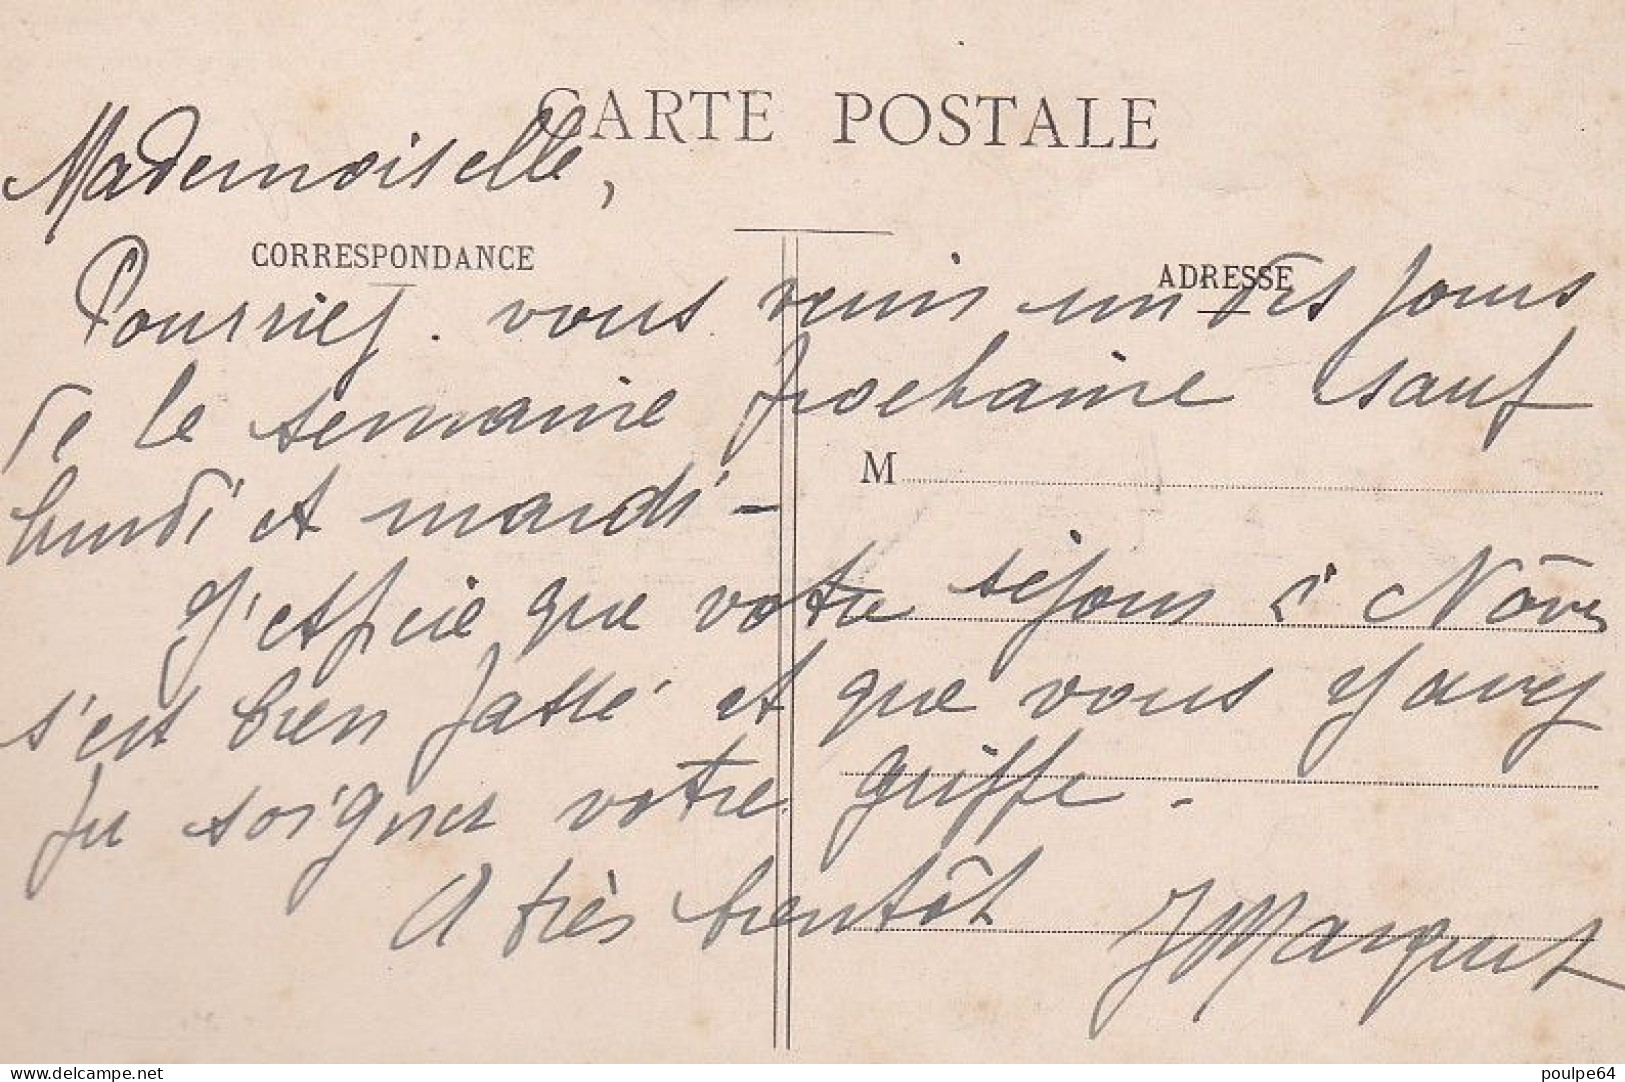 CARTE POSTALE
Mademoiselle,
CORRESPONDANCE
ADRESSE
Pourriez-vous venir un des jours
de la semaine prochaine sauf
M
lundi et mardi -
J'espère que votre séjour à
s'est bien passé et que vous y avez
pu soigner votre griffe.
A très bientôt J Marquet
Delcampe.net
poulpe64